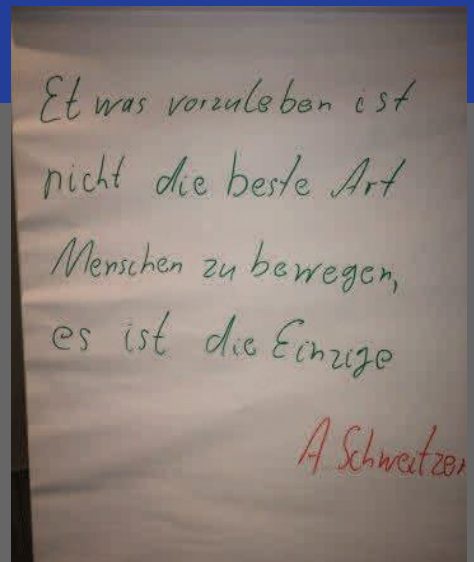 Etwas vorzuleben ist
nicht die beste Art
Menschen zu bewegen,
es ist die Einzige
A Schweitzer